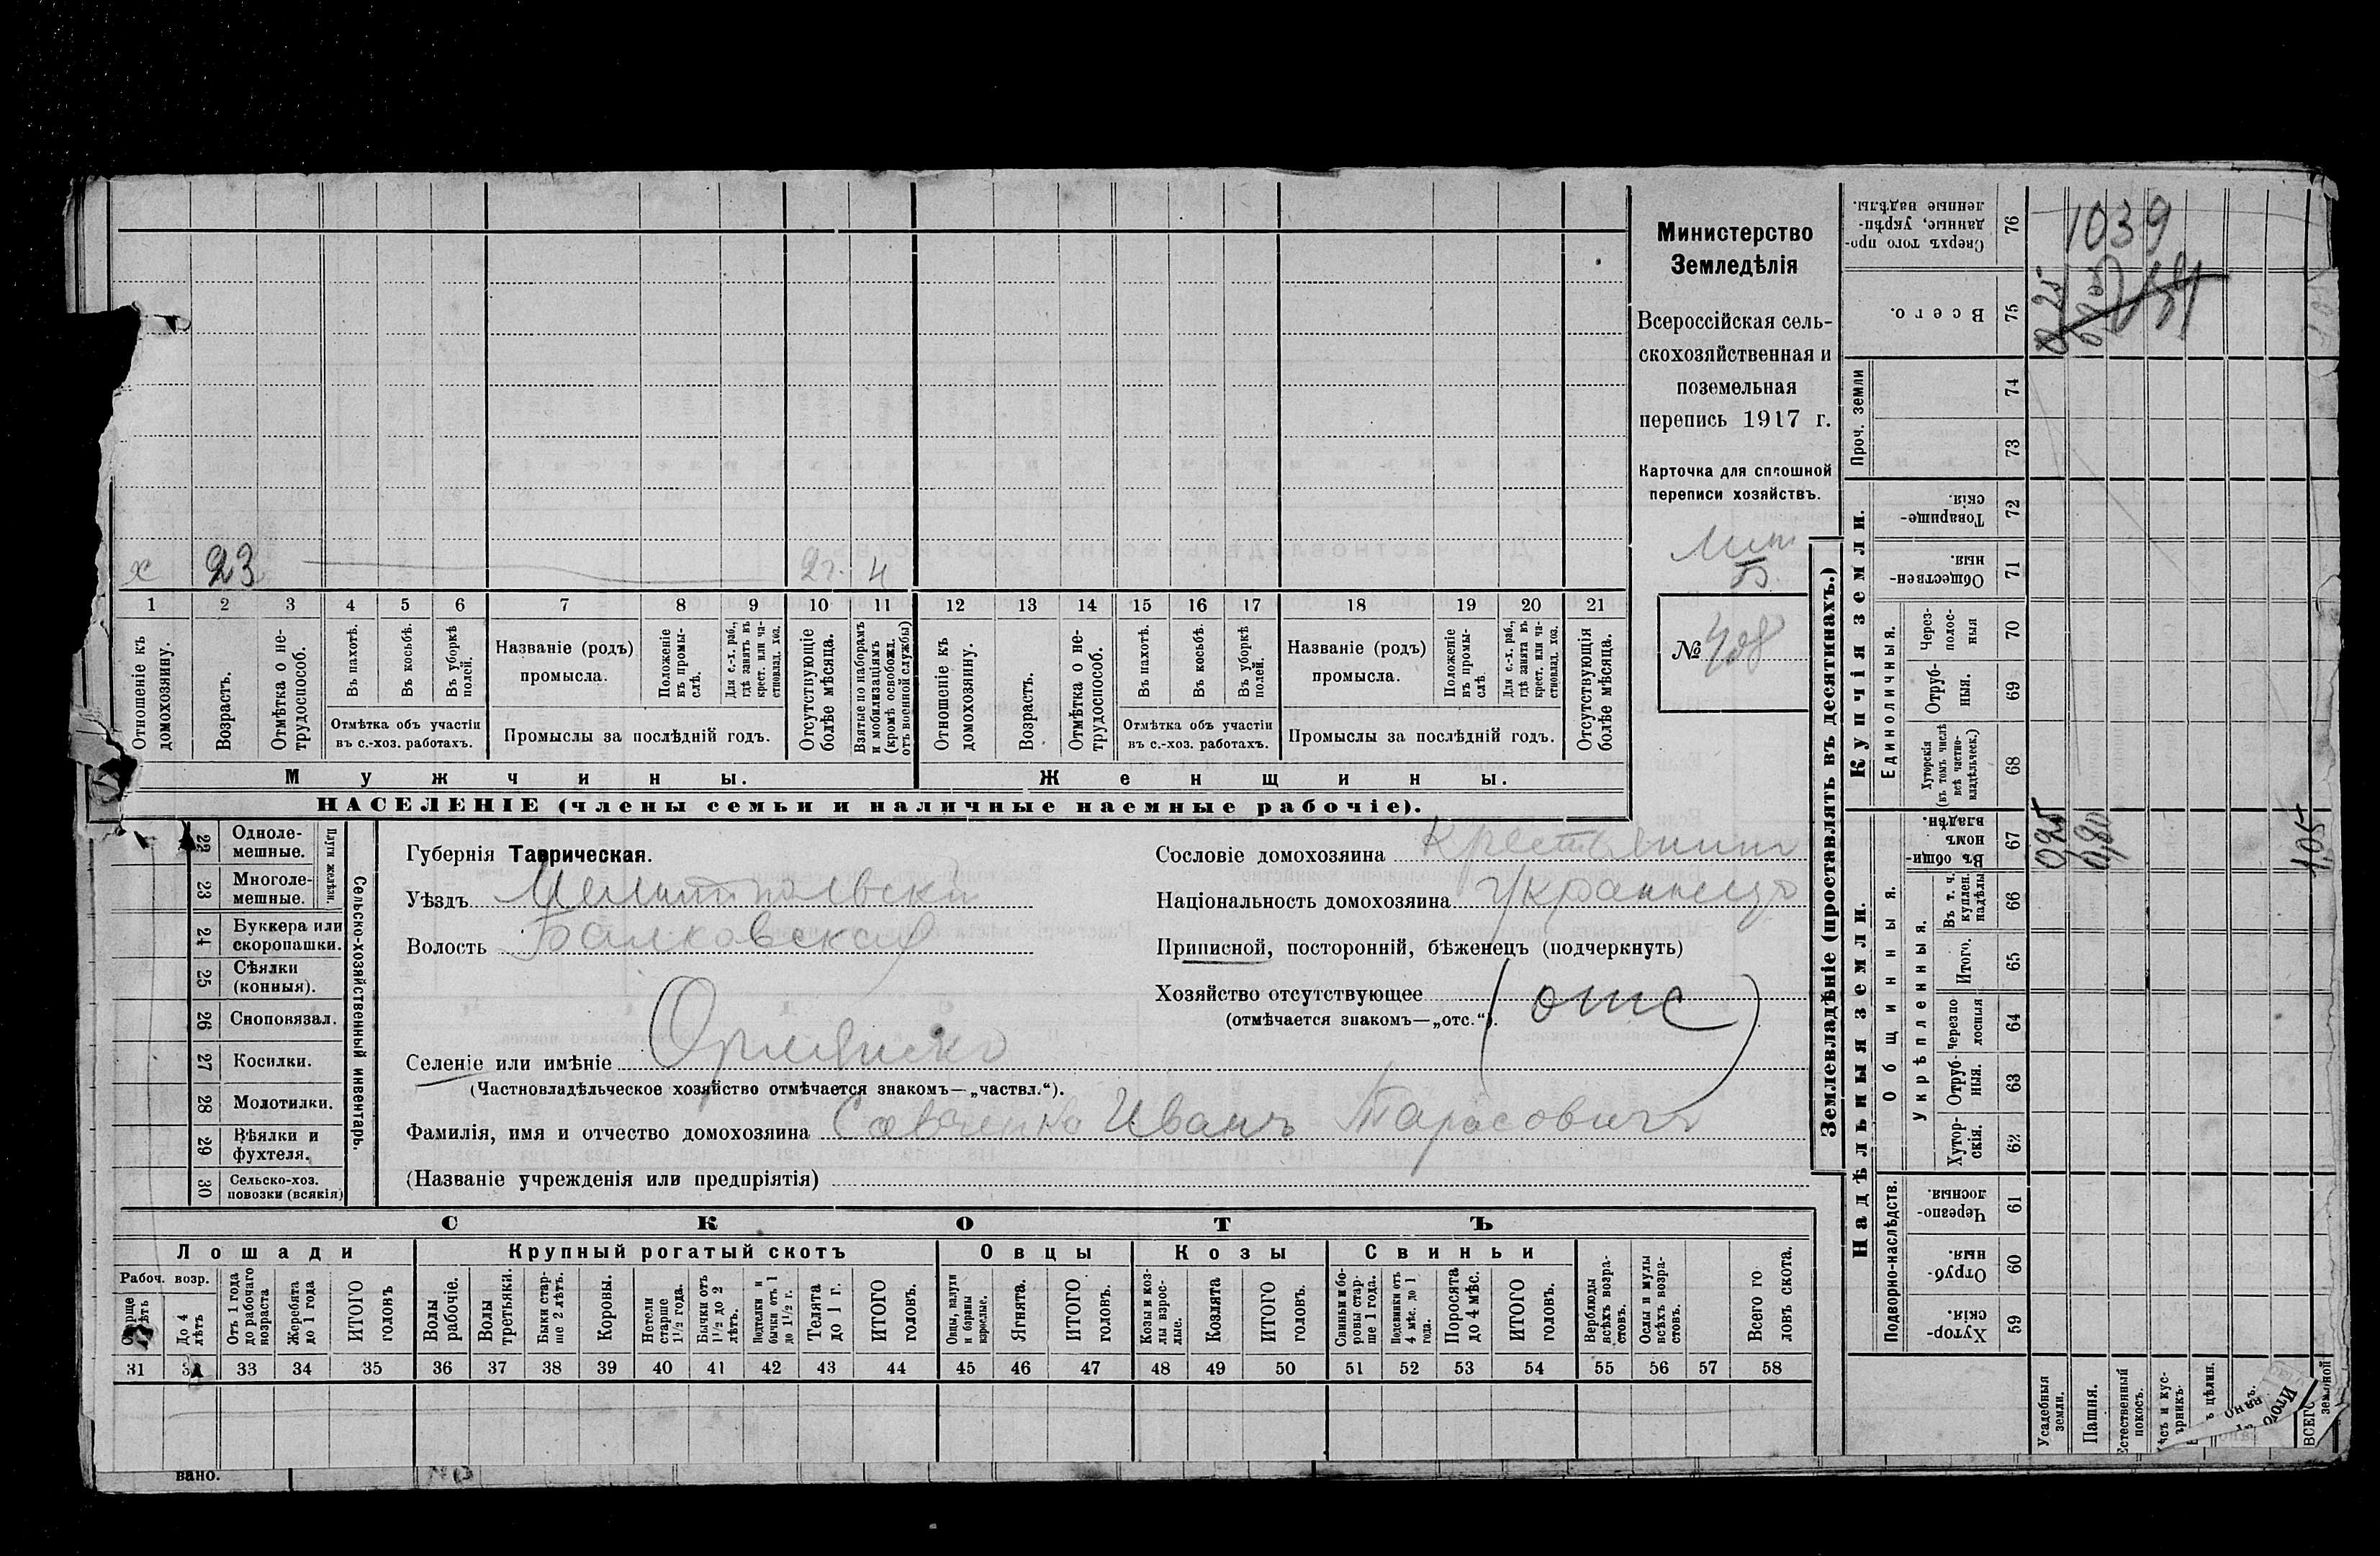 Министерство
Земледѣлія
Всероссійская сель-
скохозяйственная и
поземельная
перепись 1917 г.
Карточка для сплошной
переписи хозяйствъ.
№ 408
х 23 2 г. 4
1 2 3 4 5 6 7 8 9 10 11 12 13 14 15 16 17 18 19 20 21
Отношеніе къ домохозяину.
Возрастъ.
Отмѣтка о не-трудоспособ.
Въ пахотѣ.
Въ косьбѣ.
Въ уборкѣ полей.
Отмѣтка объ участіи въ с.-хоз. работахъ.
Названіе (родъ) промысла.
Положеніе въ промы-слѣ.
Для с.-х. раб., гдѣ занятъ въ крест. или ча-стновлад. хоз.
Промыслы за послѣдній годъ.
Отсутствующіе болѣе мѣсяца.
Взятые по наборамъ и мобилизаціямъ (кромѣ освобожд. отъ военной службы)
Отношеніе къ домохозяину.
Возрастъ.
Отмѣтка о не-трудоспособ.
Въ пахотѣ.
Въ косьбѣ.
Въ уборкѣ полей.
Отмѣтка объ участіи въ с.-хоз. работахъ.
Названіе (родъ) промысла.
Положеніе въ промы-слѣ.
Для с.-х. раб., гдѣ занята въ крест. или ча-стновлад. хоз.
Промыслы за послѣдній годъ.
Отсутствующія болѣе мѣсяца.
Мужчины.
Женщины.
НАСЕЛЕНІЕ (члены семьи и наличные наемные рабочіе).
Сельско-хозяйственный инвентарь.
Плуги желѣзн.
22 Одноле-мешные.
23 Многоле-мешные.
24 Буккера или скоропашки.
25 Сѣялки (конныя).
26 Сноповязал.
27 Косилки.
28 Молотилки.
29 Вѣялки и фухтеля.
30 Сельско-хоз. повозки (всякія)
Губернія Таврическая.
Уѣздъ Мелитопольскій
Волость Балковская
Сословіе домохозяина Крестьянинъ
Національность домохозяина Украинецъ
Приписной, посторонній, бѣженецъ (подчеркнуть)
Хозяйство отсутствующее (отс)
(отмѣчается знакомъ—„отс.“).
Селеніе или имѣніе Орлянско
(Частновладѣльческое хозяйство отмѣчается знакомъ—„частвл.“).
Фамилія, имя и отчество домохозяина Савченко Иванъ Тарасовичъ
(Названіе учрежденія или предпріятія)
СКОТЪ
Лошади
Крупный рогатый скотъ
Овцы
Козы
Свиньи
Рабоч. возр.
Старше лѣтъ
До 4 лѣтъ
Отъ 1 года до рабочаго возраста
Жеребята до 1 года
ИТОГО головъ
Волы рабочіе.
Волы третьяки.
Быки стар-ше 2 лѣтъ.
Коровы.
Нетели старше 1½ года.
Бычки отъ 1½ до 2 лѣтъ.
Подтелки и бычки отъ 1 до 1½ г.
Телята до 1 г.
ИТОГО головъ.
Овцы, валухи и бараны взрослые.
Ягнята.
ИТОГО головъ.
Козы и коз-лы взрос-лые.
Козлята
ИТОГО головъ.
Свиньи и бо-ровы стар-ше 1 года.
Подсвинки отъ 4 мѣс. до 1 года.
Поросята до 4 мѣс.
ИТОГО головъ.
Верблюды всѣхъ возра-стовъ.
Ослы и мулы всѣхъ возра-стовъ.
Всего го ловъ скота.
31 33 34 35 36 37 38 39 40 41 42 43 44 45 46 47 48 49 50 51 52 53 54 55 56 57 58
вано.
Землевладѣніе (проставлять въ десятинахъ.)
Надѣльныя земли.
Купчія земли.
Проч. земли
Подворно-наслѣдств.
Общинныя.
Укрѣпленныя.
Единоличныя.
Сверхъ того про-данные, укрѣп-ленные надѣлы. 76
Всего. 75
74
73
Товарище-скія. 72
Обществен-ныя. 71
Через-полос-ныя 70
Отруб-ныя. 69
Хуторскія (въ томъ числѣ всѣ частно-владѣльческ.) 68
Въ общин-номъ владѣн. 67
Въ т. ч. куплен. надѣлы 66
Итого. 65
Черезпо лосныя 64
Отруб-ныя. 63
Хутор-скія. 62
Черезпо-лосныя. 61
Отруб-ныя. 60
Хутор-скія. 59
Усадебныя земли.
Пашня.
Естественный покосъ.
Итого
1039
0,25
0,25
0,80
1,05